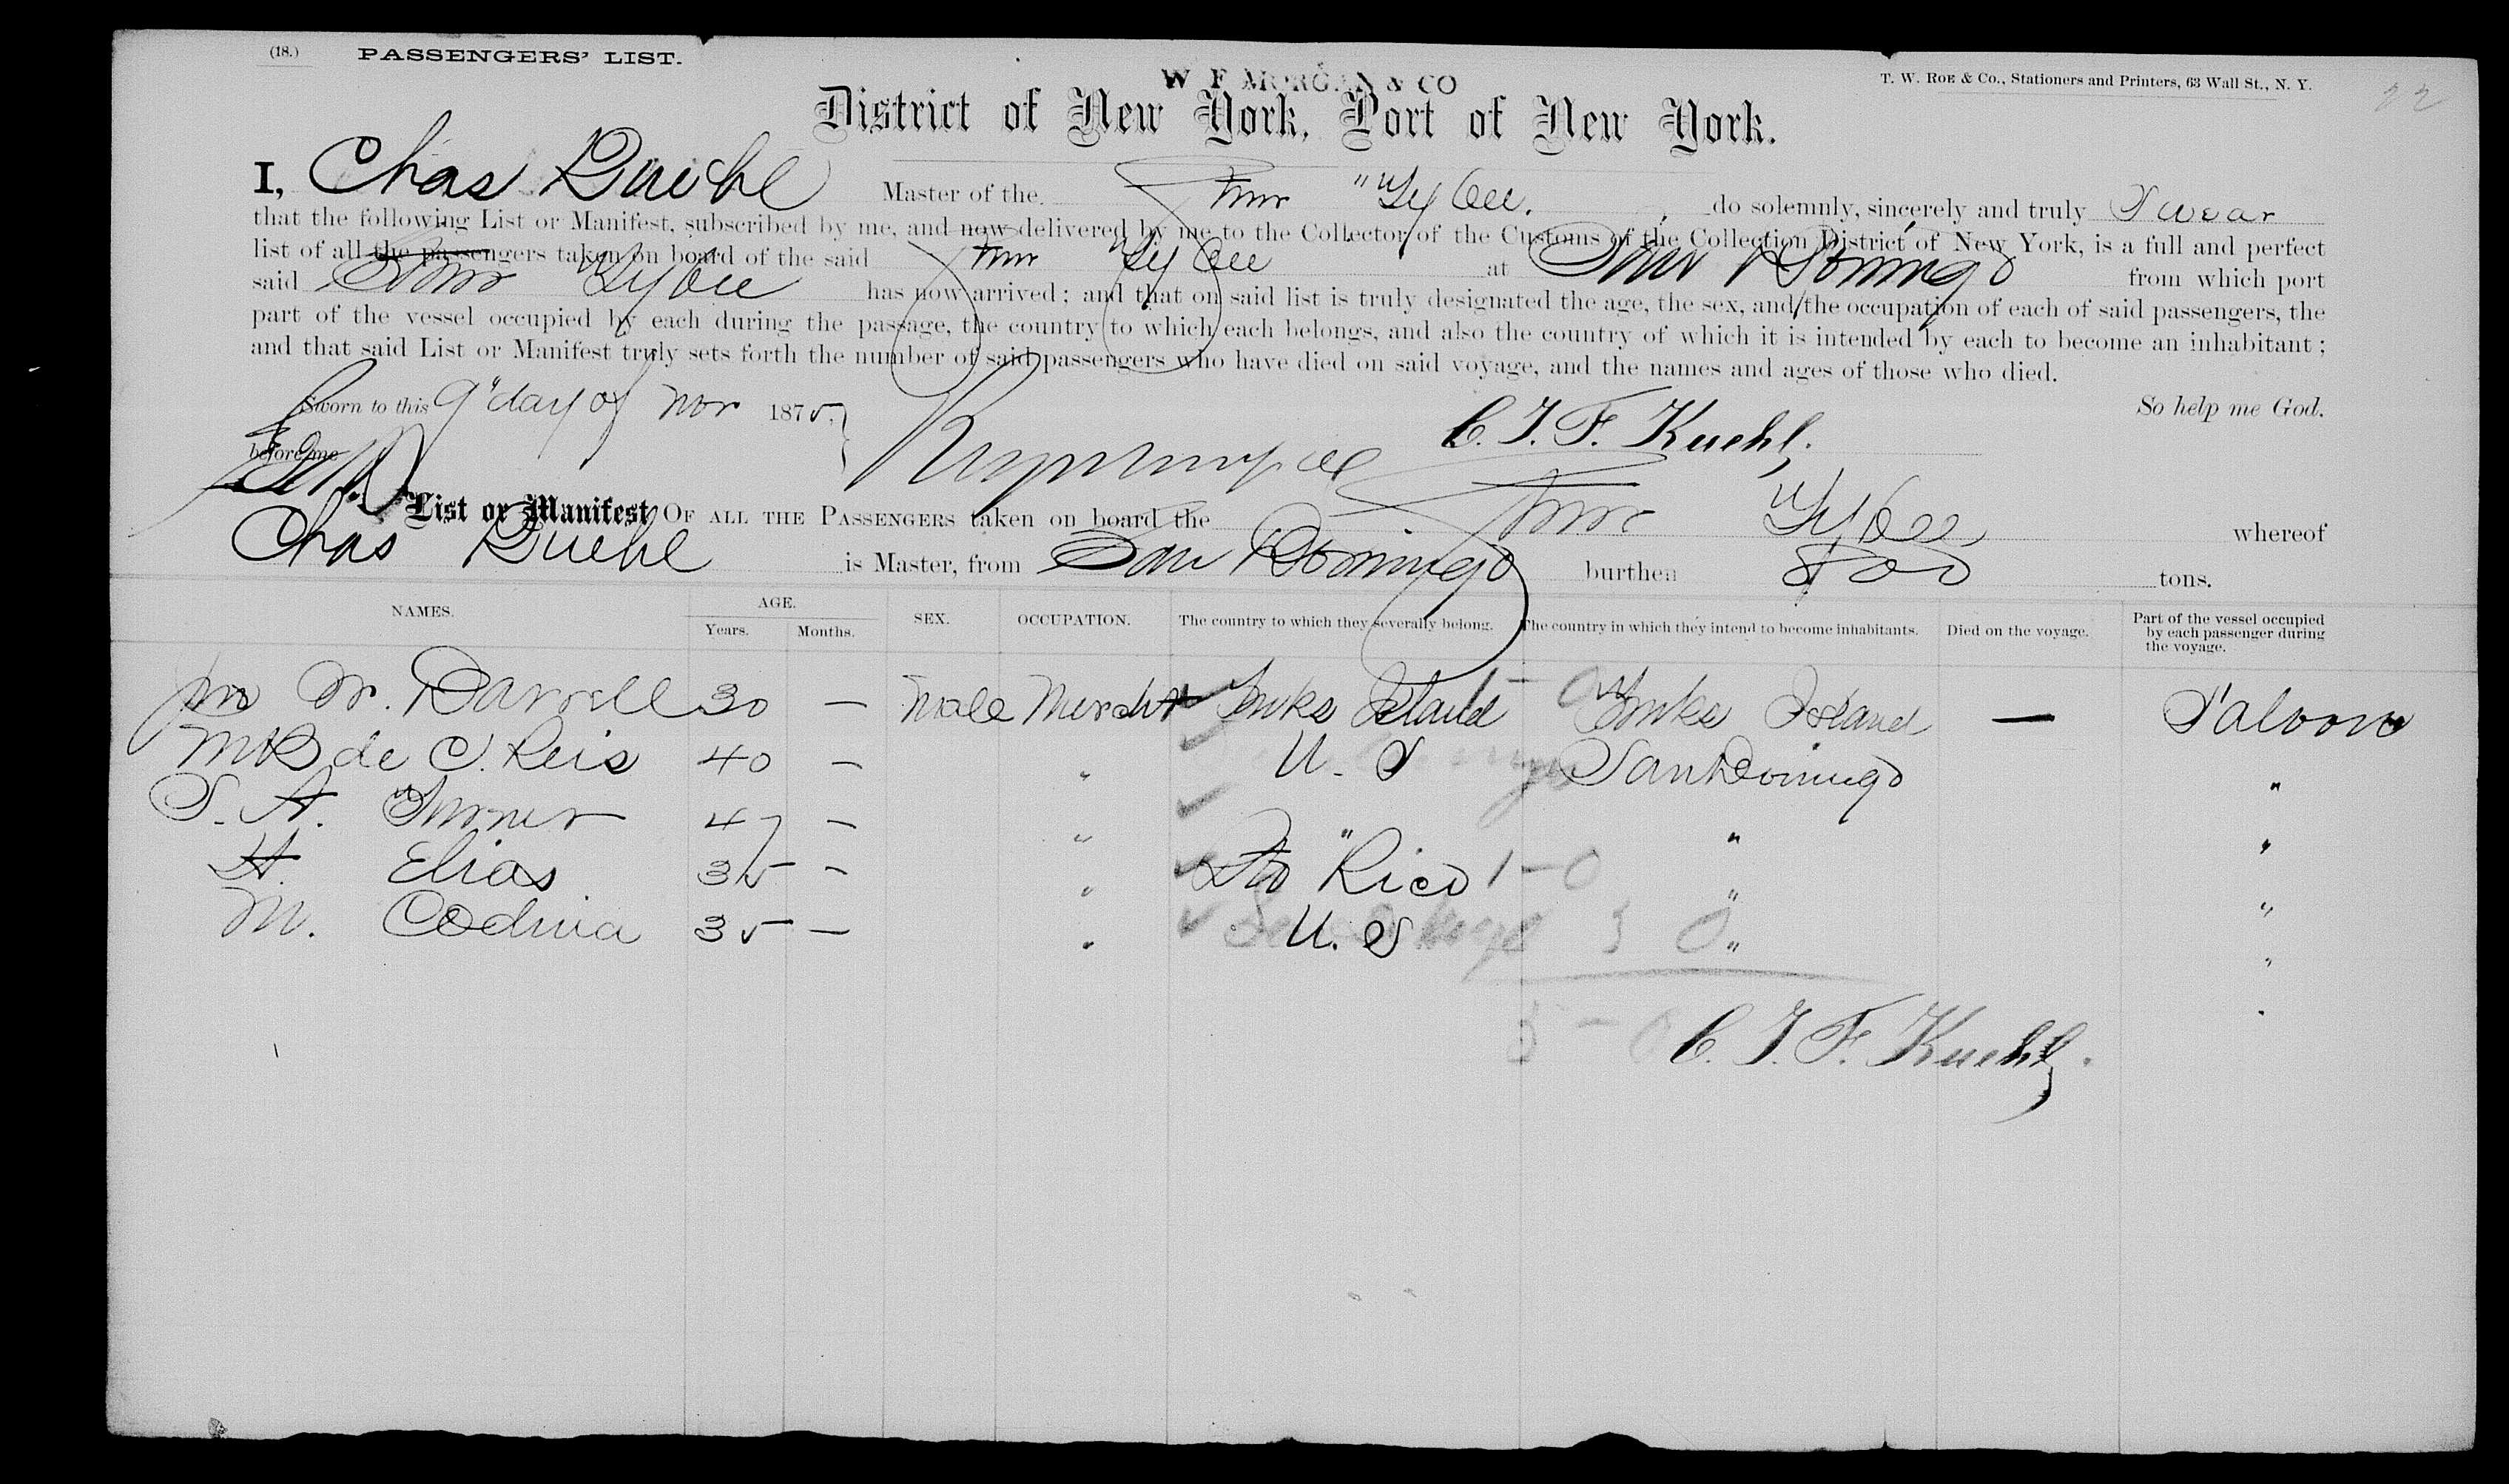 (18.) PASSENGERS' LIST.
W F MORGAN & CO
T. W. ROE & Co., Stationers and Printers, 63 Wall St., N. Y.
22
District of New York, Port of New York.
I, Chas Kuehl Master of the Stmr "Tybee. do solemnly, sincerely and truly Swear
that the following List or Manifest, subscribed by me, and now delivered by me to the Collector of the Customs of the Collection District of New York, is a full and perfect
list of all the passengers taken on board of the said Stmr Tybee at San Domingo from which port
said Stmr Tybee has now arrived; and that on said list is truly designated the age, the sex, and the occupation of each of said passengers, the
part of the vessel occupied by each during the passage, the country to which each belongs, and also the country of which it is intended by each to become an inhabitant;
and that said List or Manifest truly sets forth the number of said passengers who have died on said voyage, and the names and ages of those who died.
Sworn to this 9" day of Nov 1875, So help me God.
before me C. T. F. Kuehl.
List or Manifest OF ALL THE PASSENGERS taken on board the Stmr Tybee whereof
Chas Kuehl is Master, from San Domingo burthen 800 tons.
NAMES. AGE. Years. Months. SEX. OCCUPATION. The country to which they severally belong. The country in which they intend to become inhabitants. Died on the voyage. Part of the vessel occupied by each passenger during the voyage.
Jno W. Darrell 30 — Male Mercht Turks Island Turks Island — Saloon
de C. Reis 40 — " U. S San Domingo "
S. A. Turner 47 — " " " "
H. Elias 35 — " Pto Rico 1-0 " "
M. Codina 35 — " U. S 3 0 " "
5 - 0
C. T. F. Kuehl.